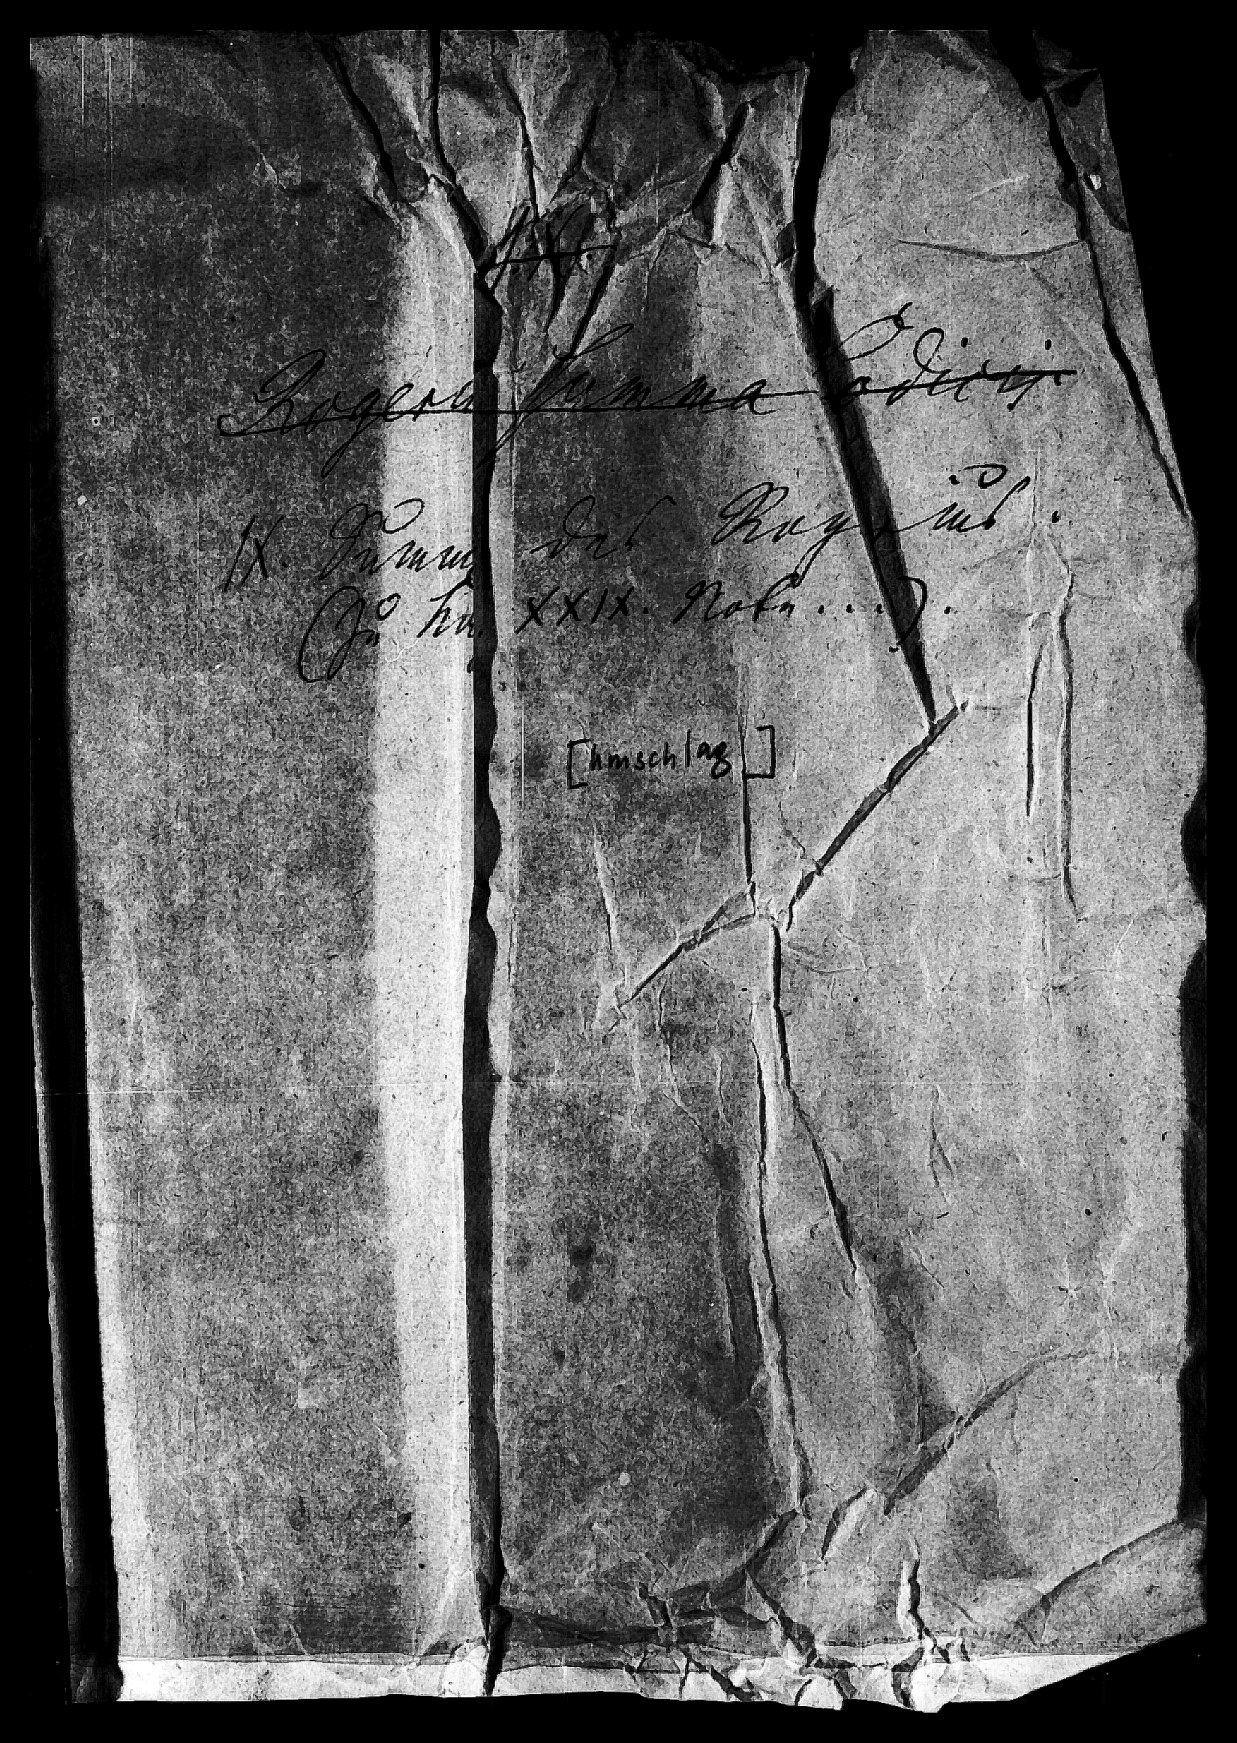 Rogerii Summa Codicis
IX. Summe des Rogerius.
(Zu XXIX. Note...).
[Umschlag]